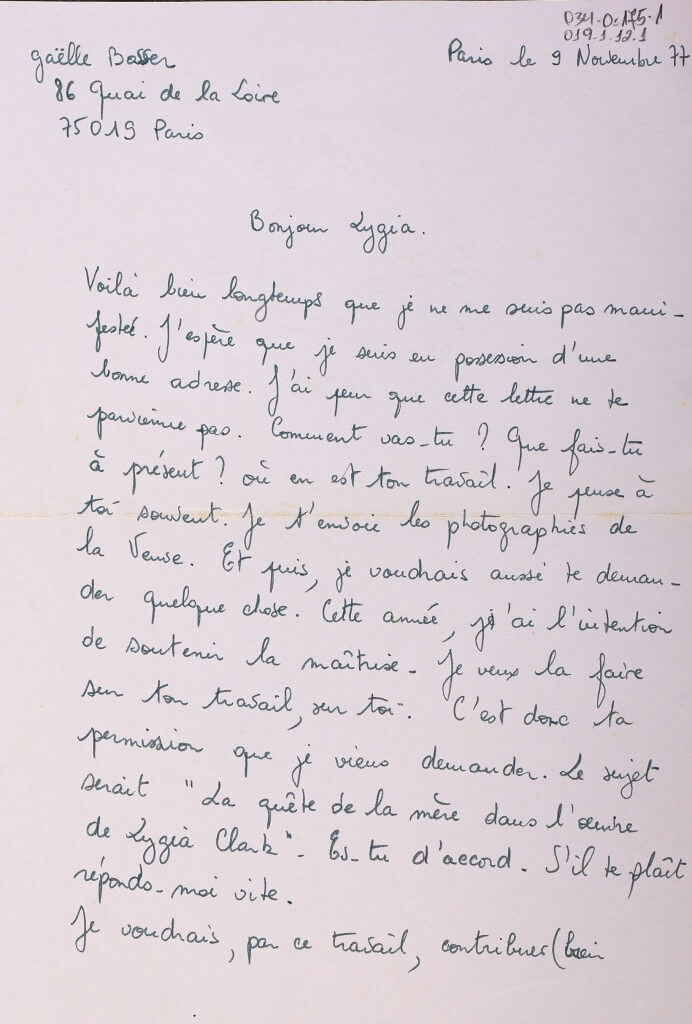 034.0.175.1
019.1.12.1
Gaëlle Bosser
Paris le 9 Novembre 77
86 Quai de la Loire
75019 Paris
Bonjour Lygia.
Voilà bien longtemps que je ne me suis pas mani-
festée. J'espère que je suis en possession d'une
bonne adresse. J'ai peur que cette lettre ne te
parvienne pas. Comment vas-tu ? Que fais-tu
à présent ? où en est ton travail. Je pense à
toi souvent. Je t'envoie les photographies de
la Veuve. Et puis, je voudrais aussi te deman-
der quelque chose. Cette année, j'ai l'intention
de soutenir la maîtrise. Je veux la faire
sur ton travail, sur toi. C'est donc ta
permission que je viens demander. Le sujet
serait "La quête de la mère dans l'œuvre
de Lygia Clark". Es-tu d'accord. S'il te plaît
réponds-moi vite.
Je voudrais, par ce travail, contribuer (bien